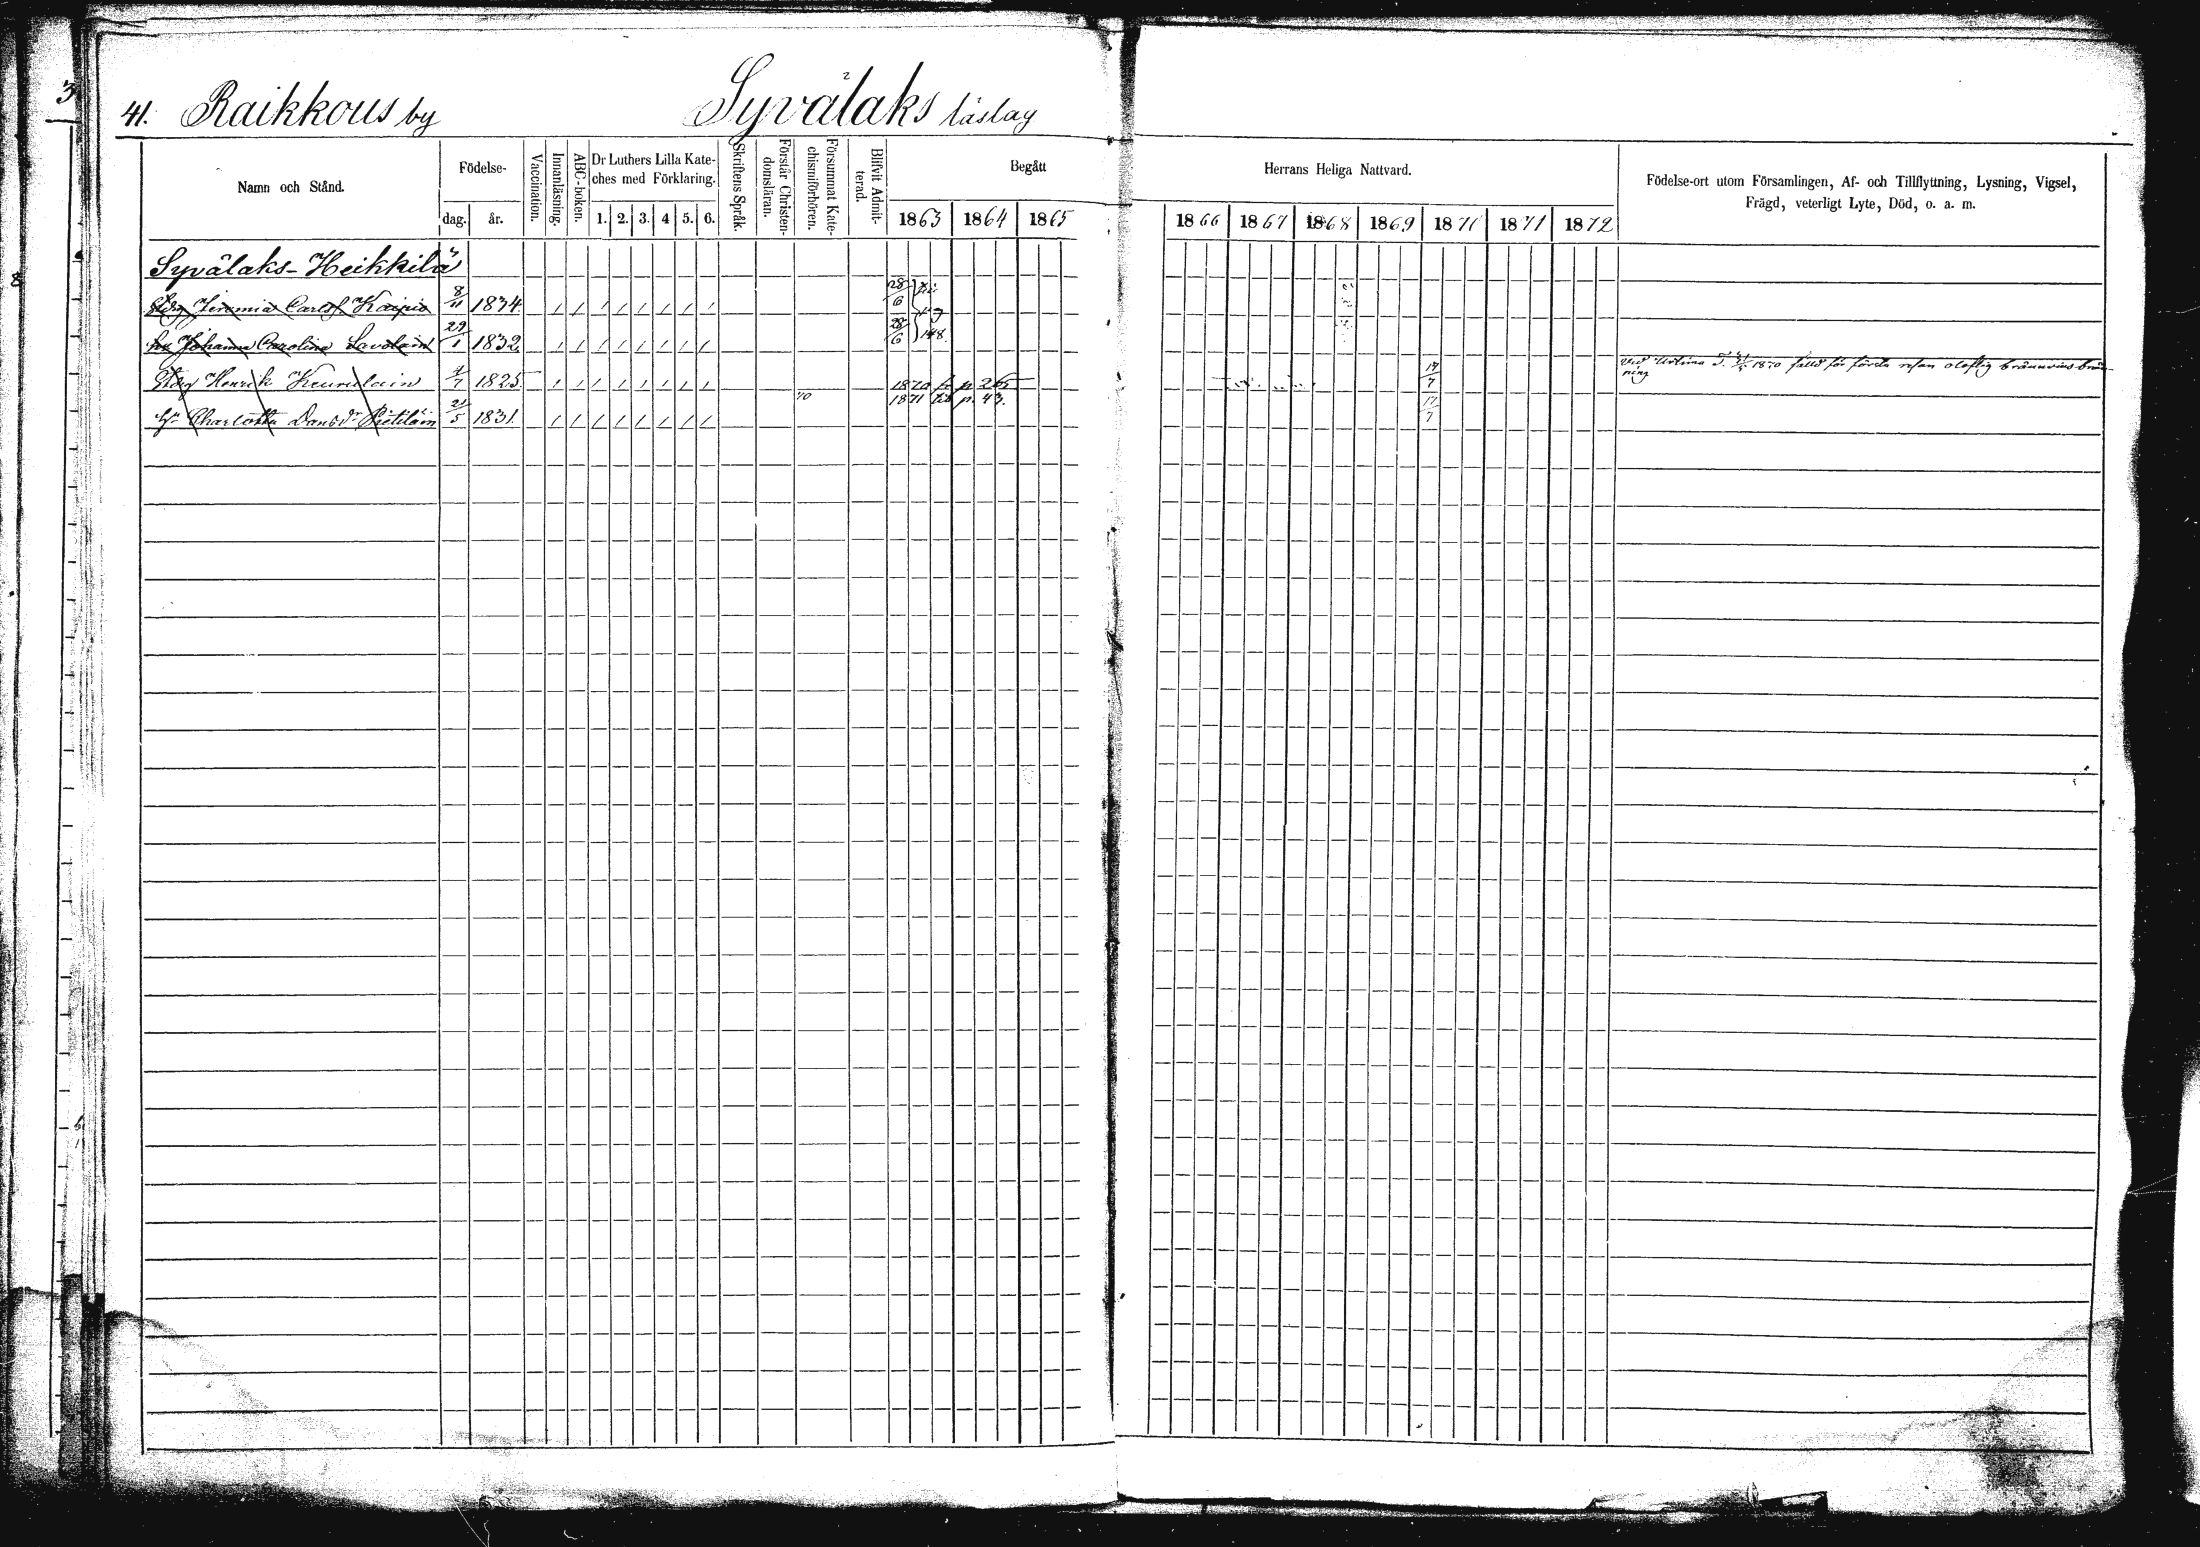 41. Raikkous by Syvälaks läslag
Namn och Stånd.
Födelse-
dag. år.
Vaccination.
Innanläsning.
ABC-boken.
Dr Luthers Lilla Kate-
ches med Förklaring.
1. 2. 3. 4 5. 6.
Skriftens Språk.
Förstår Christen-
domsläran.
Försummat Kate-
chismiförhören.
Blifvit Admit-
terad.
Begått Herrans Heliga Nattvard.
1863 1864 1865 1866 1867 1868 1869 1870 1871 1872
Födelse-ort utom Församlingen, Af- och Tillflyttning, Lysning, Vigsel,
Frägd, veterligt Lyte, Död, o. a. m.
Syvälaks-Heikkilä
Jeremia Carlsf. Kaipio 8/11 1834. 28/6
Johanna Carolina Savolain 29/1 1832. 28/6 148.
Henrik Keurulain 4/7 1825. 1870 fr. p. 265 17/7
1870 fälld för första resan olaflig brännvins brän-
ning
Charlotta Dansdr Pietiläin 21/5 1831. 70 1871 till p. 43. 17/7